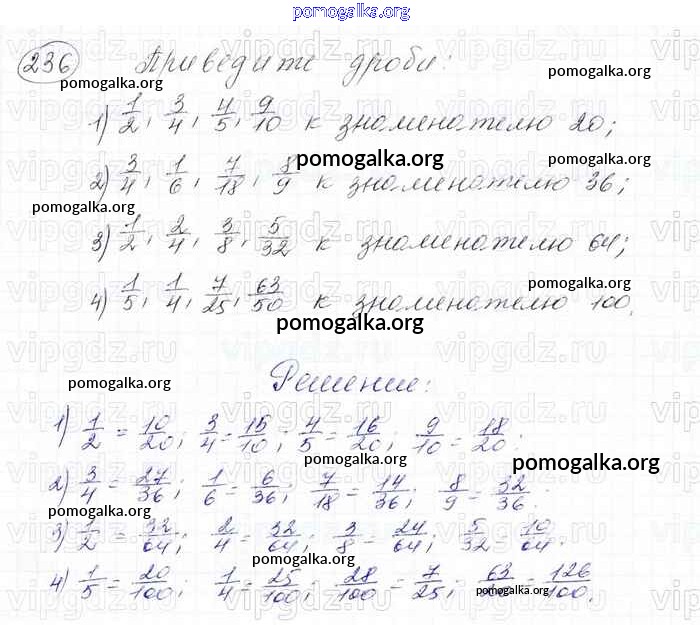 pomogalka.org
236 Приведите дроби:
pomogalka.org pomogalka.org
1) 1/2, 3/4, 4/5, 9/10 к знаменателю 20;
pomogalka.org pomogalka.org
2) 3/4, 1/6, 7/18, 8/9 к знаменателю 36;
pomogalka.org
3) 1/2, 2/4, 3/8, 5/32 к знаменателю 64;
pomogalka.org
4) 1/5, 1/4, 7/25, 63/50 к знаменателю 100.
pomogalka.org
Решение:
pomogalka.org
1) 1/2 = 10/20; 3/4 = 15/10; 4/5 = 16/20; 9/10 = 18/20;
pomogalka.org
2) 3/4 = 27/36; 1/6 = 6/36; 7/18 = 14/36; 8/9 = 32/36.
pomogalka.org
3) 1/2 = 32/64; 2/4 = 32/64; 3/8 = 24/64; 5/32 = 10/64.
pomogalka.org
4) 1/5 = 20/100; 1/4 = 25/100; 28/100 = 7/25; 63/ = 126/100.
pomogalka.org
vipgdz.ru